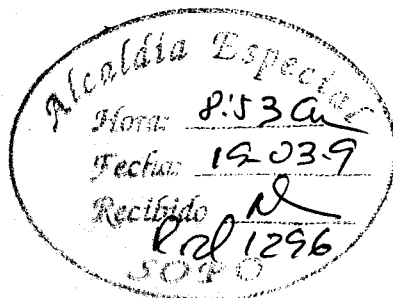 Alcaldía Especial
Hora: 8:53 am
Fecha: 19-03-9
Recibido
Rad 1296
SOPO